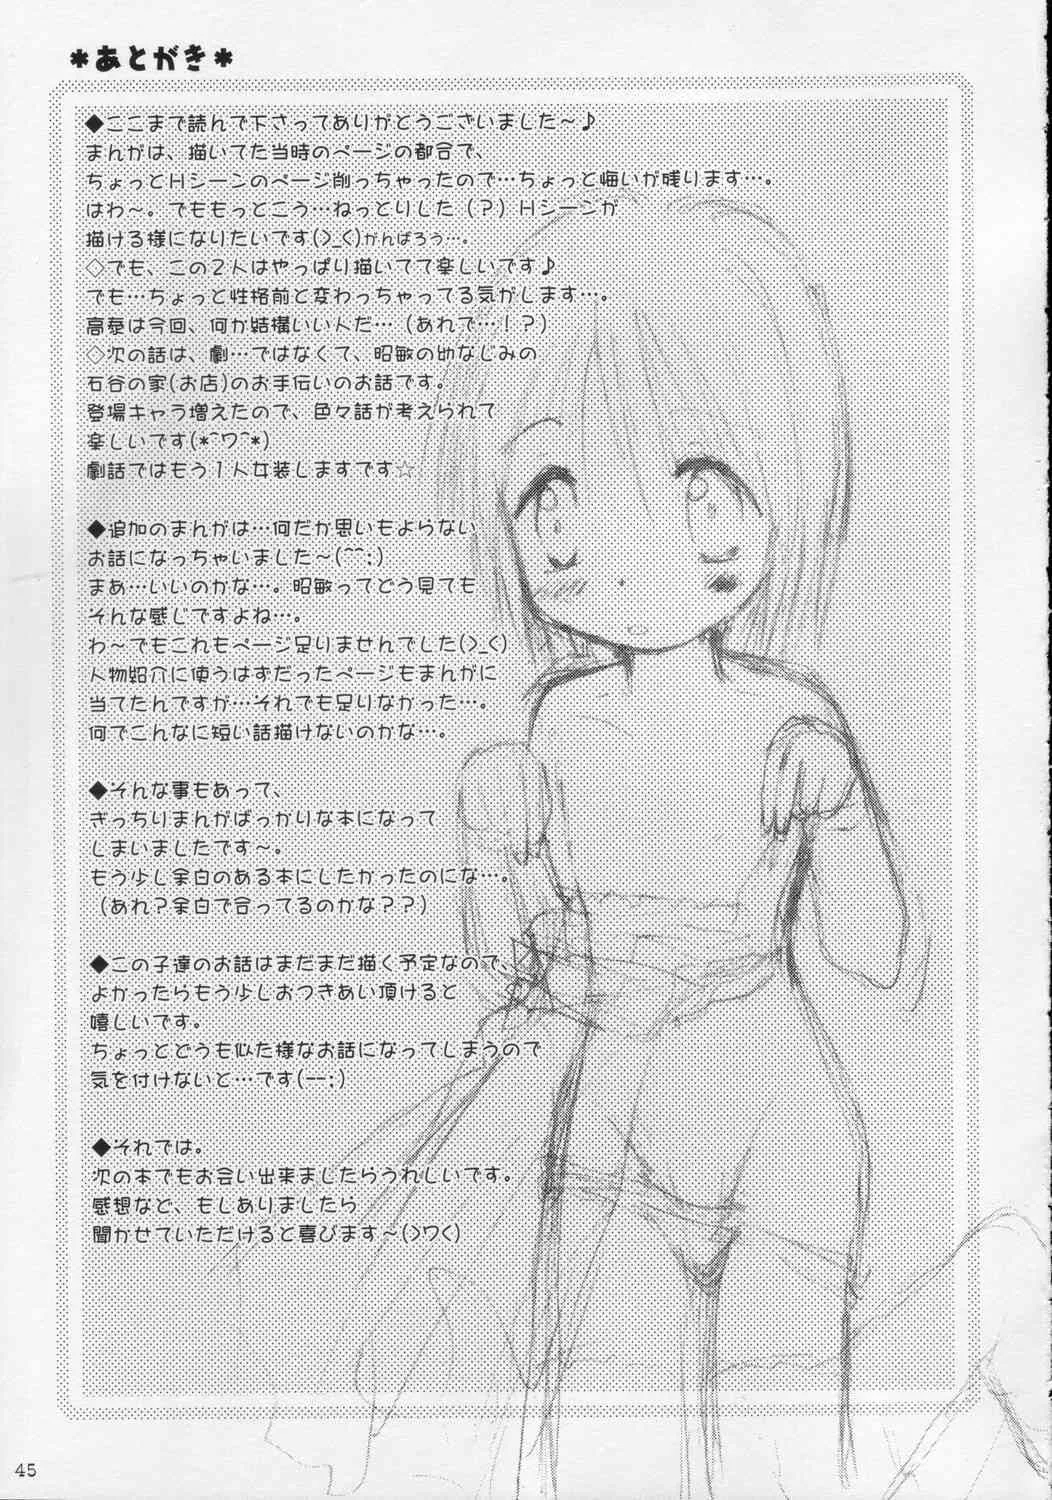 *あとがき*
◆ここまで読んで下さってありがとうございました～♪
まんがは、描いてた当時のページの都合で、
ちょっとHシーンのページ削っちゃったので…ちょっと悔いが残ります…。
はわ～。でももっとこう…ねっとりした（？）Hシーンが
描ける様になりたいです(>_<)がんばろう…。
◇でも、この２人はやっぱり描いてて楽しいです♪
でも…ちょっと性格前と変わっちゃってる気がします…。
高泰は今回、何か結構いい人だ…（あれで…！？）
◇次の話は、劇…ではなくて、昭敏の幼なじみの
石谷の家(お店)のお手伝いのお話です。
登場キャラ増えたので、色々話が考えられて
楽しいです(*^ワ^*)
劇話ではもう１人女装しますです☆
◆追加のまんがは…何だか思いもよらない
お話になっちゃいました～(^^;)
まあ…いいのかな…。昭敏ってどう見ても
そんな感じですよね…。
わ～でもこれもページ足りませんでした(>_<)
人物紹介に使うはずだったページもまんがに
当てたんですが…それでも足りなかった…。
何でこんなに短い話描けないのかな…。
◆そんな事もあって、
ぎっちりまんがばっかりな本になって
しまいましたです～。
もう少し余白のある本にしたかったのにな…。
（あれ？余白で合ってるのかな？？）
◆この子達のお話はまだまだ描く予定なので、
よかったらもう少しおつきあい頂けると
嬉しいです。
ちょっとどうも似た様なお話になってしまうので
気を付けないと…です(--;)
◆それでは。
次の本でもお会い出来ましたらうれしいです。
感想など、もしありましたら
聞かせていただけると喜びます～(>ワ<)
45